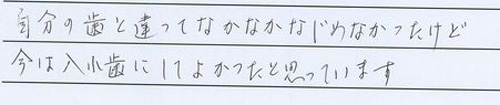 自分の歯と違ってなかなかなじめなかったけど
今は入れ歯にしてよかったと思っています